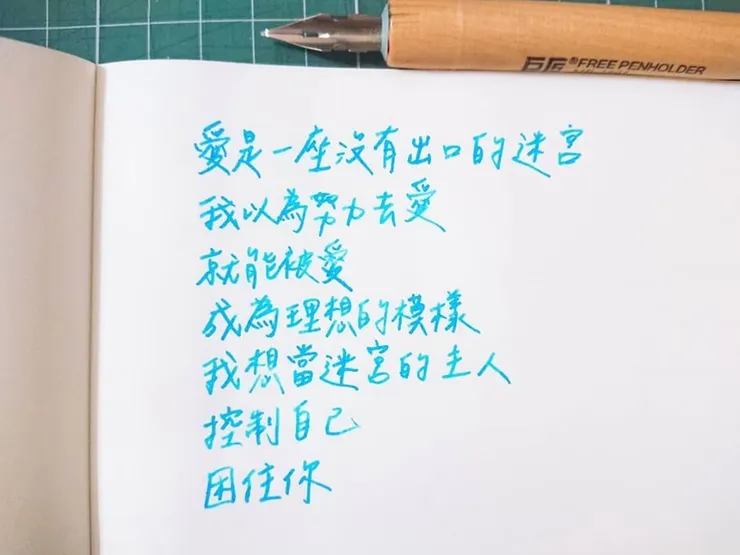 巨匠®FREE PENHOLDER
愛是一座沒有出口的迷宮
我以為努力去愛
就能被愛
成為理想的模樣
我想當迷宮的主人
控制自己
困住你